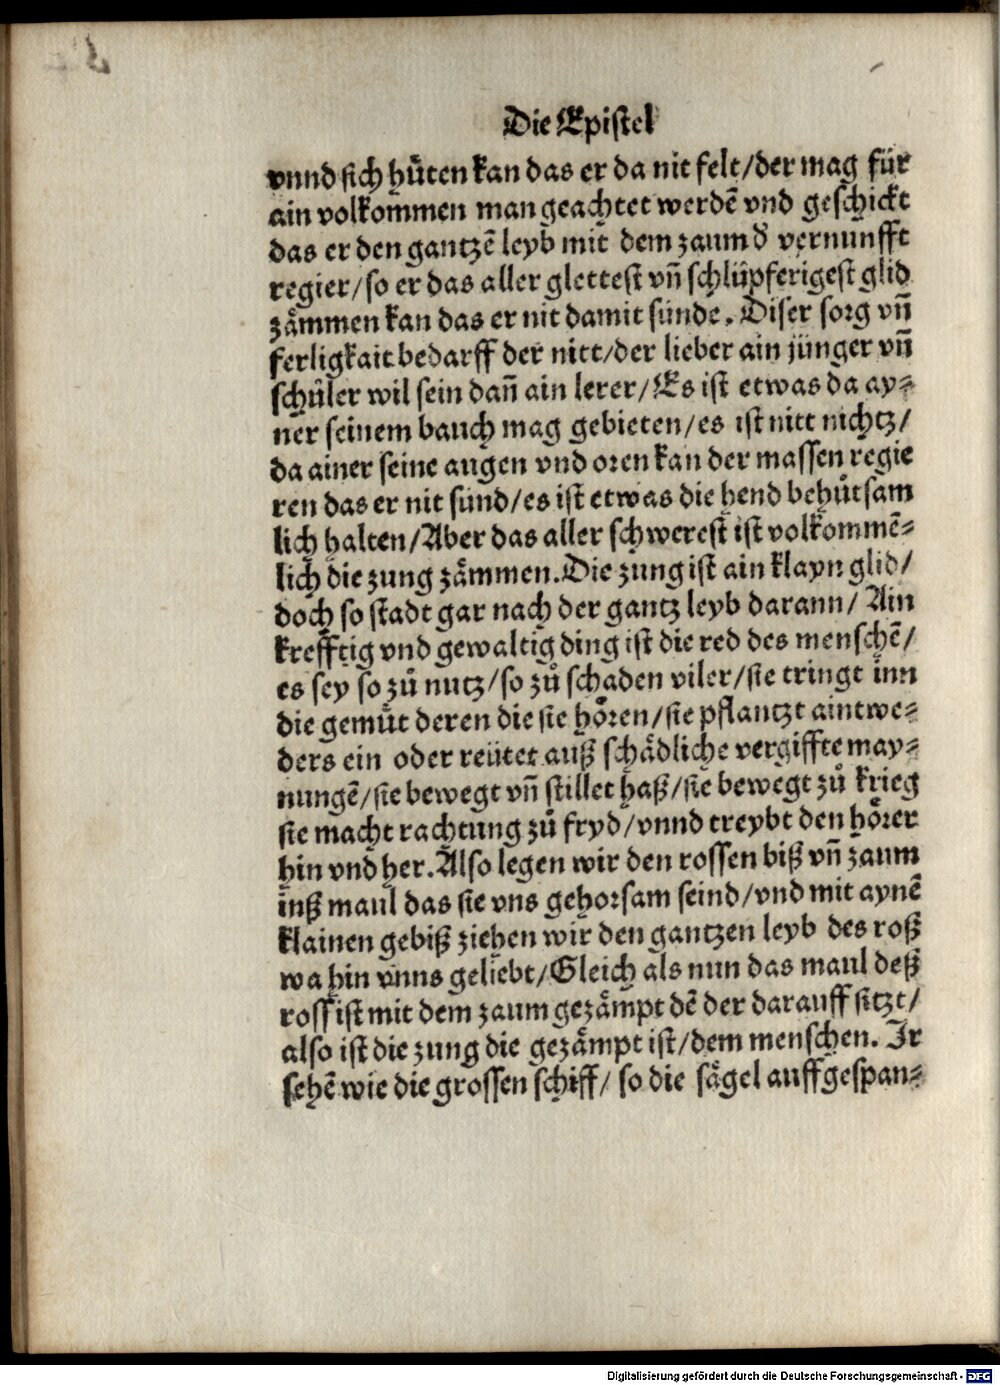 Die Epistel
vnnd sich hu̍ten kan das er da nit felt/der mag für
ain volkommen man geachtet werdē vnd geschickt
das er den gantzē leyb mit dem zaum d̕ vernunfft
regier/so er das aller glettest vn̄ schlüpferigest glid
zämmen kan das er nit damit sünde. Diser sorg vn̄
ferligkait bedarff der nitt/der lieber ain jünger vn̄
schüler wil sein dan̄ ain lerer/Es ist etwas da ay⸗
ner seinem bauch mag gebieten/es ist nitt nichtz/
da ainer seine augen vnd oren kan der massen regie
ren das er nit sünd/es ist etwas die hend behütsam
lich halten/Aber das aller schwerest ist volkommē⸗
lich die zung zämmen. Die zung ist ain klayn glid/
doch so stadt gar nach der gantz leyb darann/ Ain
krefftig vnd gewaltig ding ist die red des menschē/
es sey so zů nutz/so zů schaden viler/sie tringt inn
die gemüt deren die sie hören/sie pflantzt aintwe⸗
ders ein oder reütet auß schädliche vergiffte may⸗
nungē/sie bewegt vn̄ stillet haß/sie bewegt zů krieg
sie macht rachtung zů fryd/vnnd treybt den hörer
hin vnd her. Also legen wir den rossen biß vn̄ zaum
inß maul das sie vns gehorsam seind/vnd mit aynē
klainen gebiß ziehen wir den gantzen leyb des roß
wa hin vnns geliebt/Gleich als nun das maul deß
ross ist mit dem zaum gezämpt dē der darauff sitzt/
also ist die zung die gezämpt ist/dem menschen. Ir
sehē wie die grossen schiff/ so die sägel auffgespan⸗
Digitalisierung gefördert durch die Deutsche Forschungsgemeinschaft - DFG